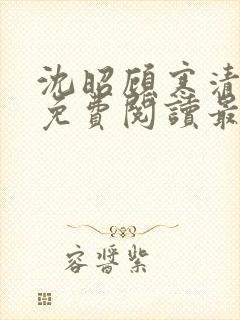 沈昭顾寒清
免費閱讀最
容醬紫